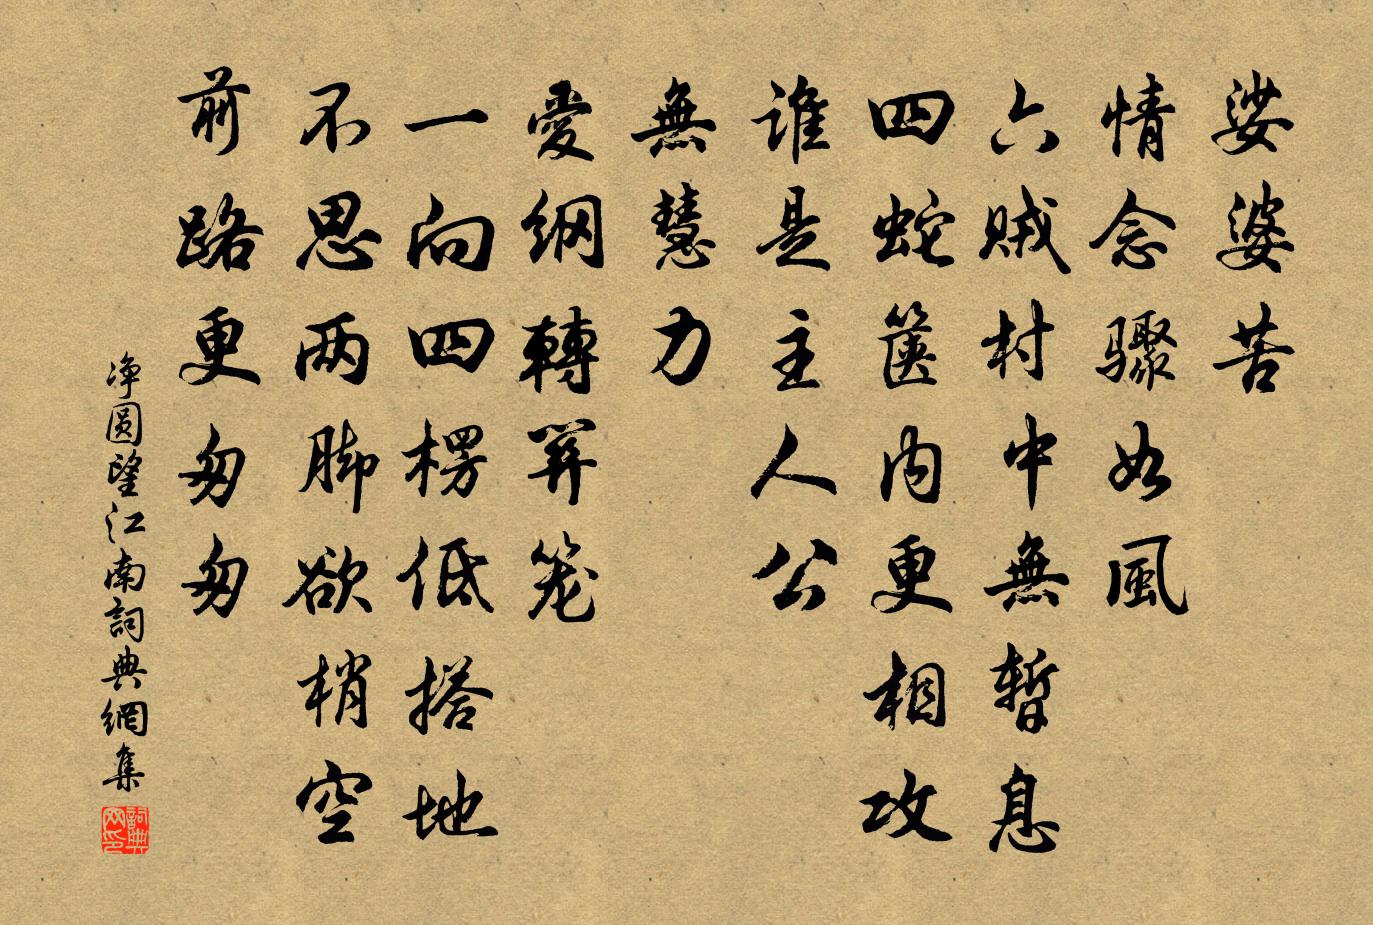 娑婆苦
情念骤如風
六贼村中無暫息
四蛇箧内更相攻
谁是主人公
無慧力
愛網轉關笼
一向四楞低搭地
不思两脚欲梢空
前路更匆匆
净圆望江南詞典網集
詞典网印